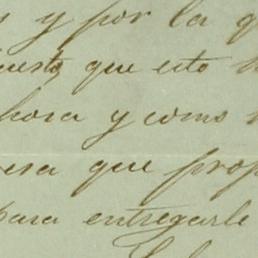 y por la q
uesto que esto
hora y como
esa que prop
para entregarle